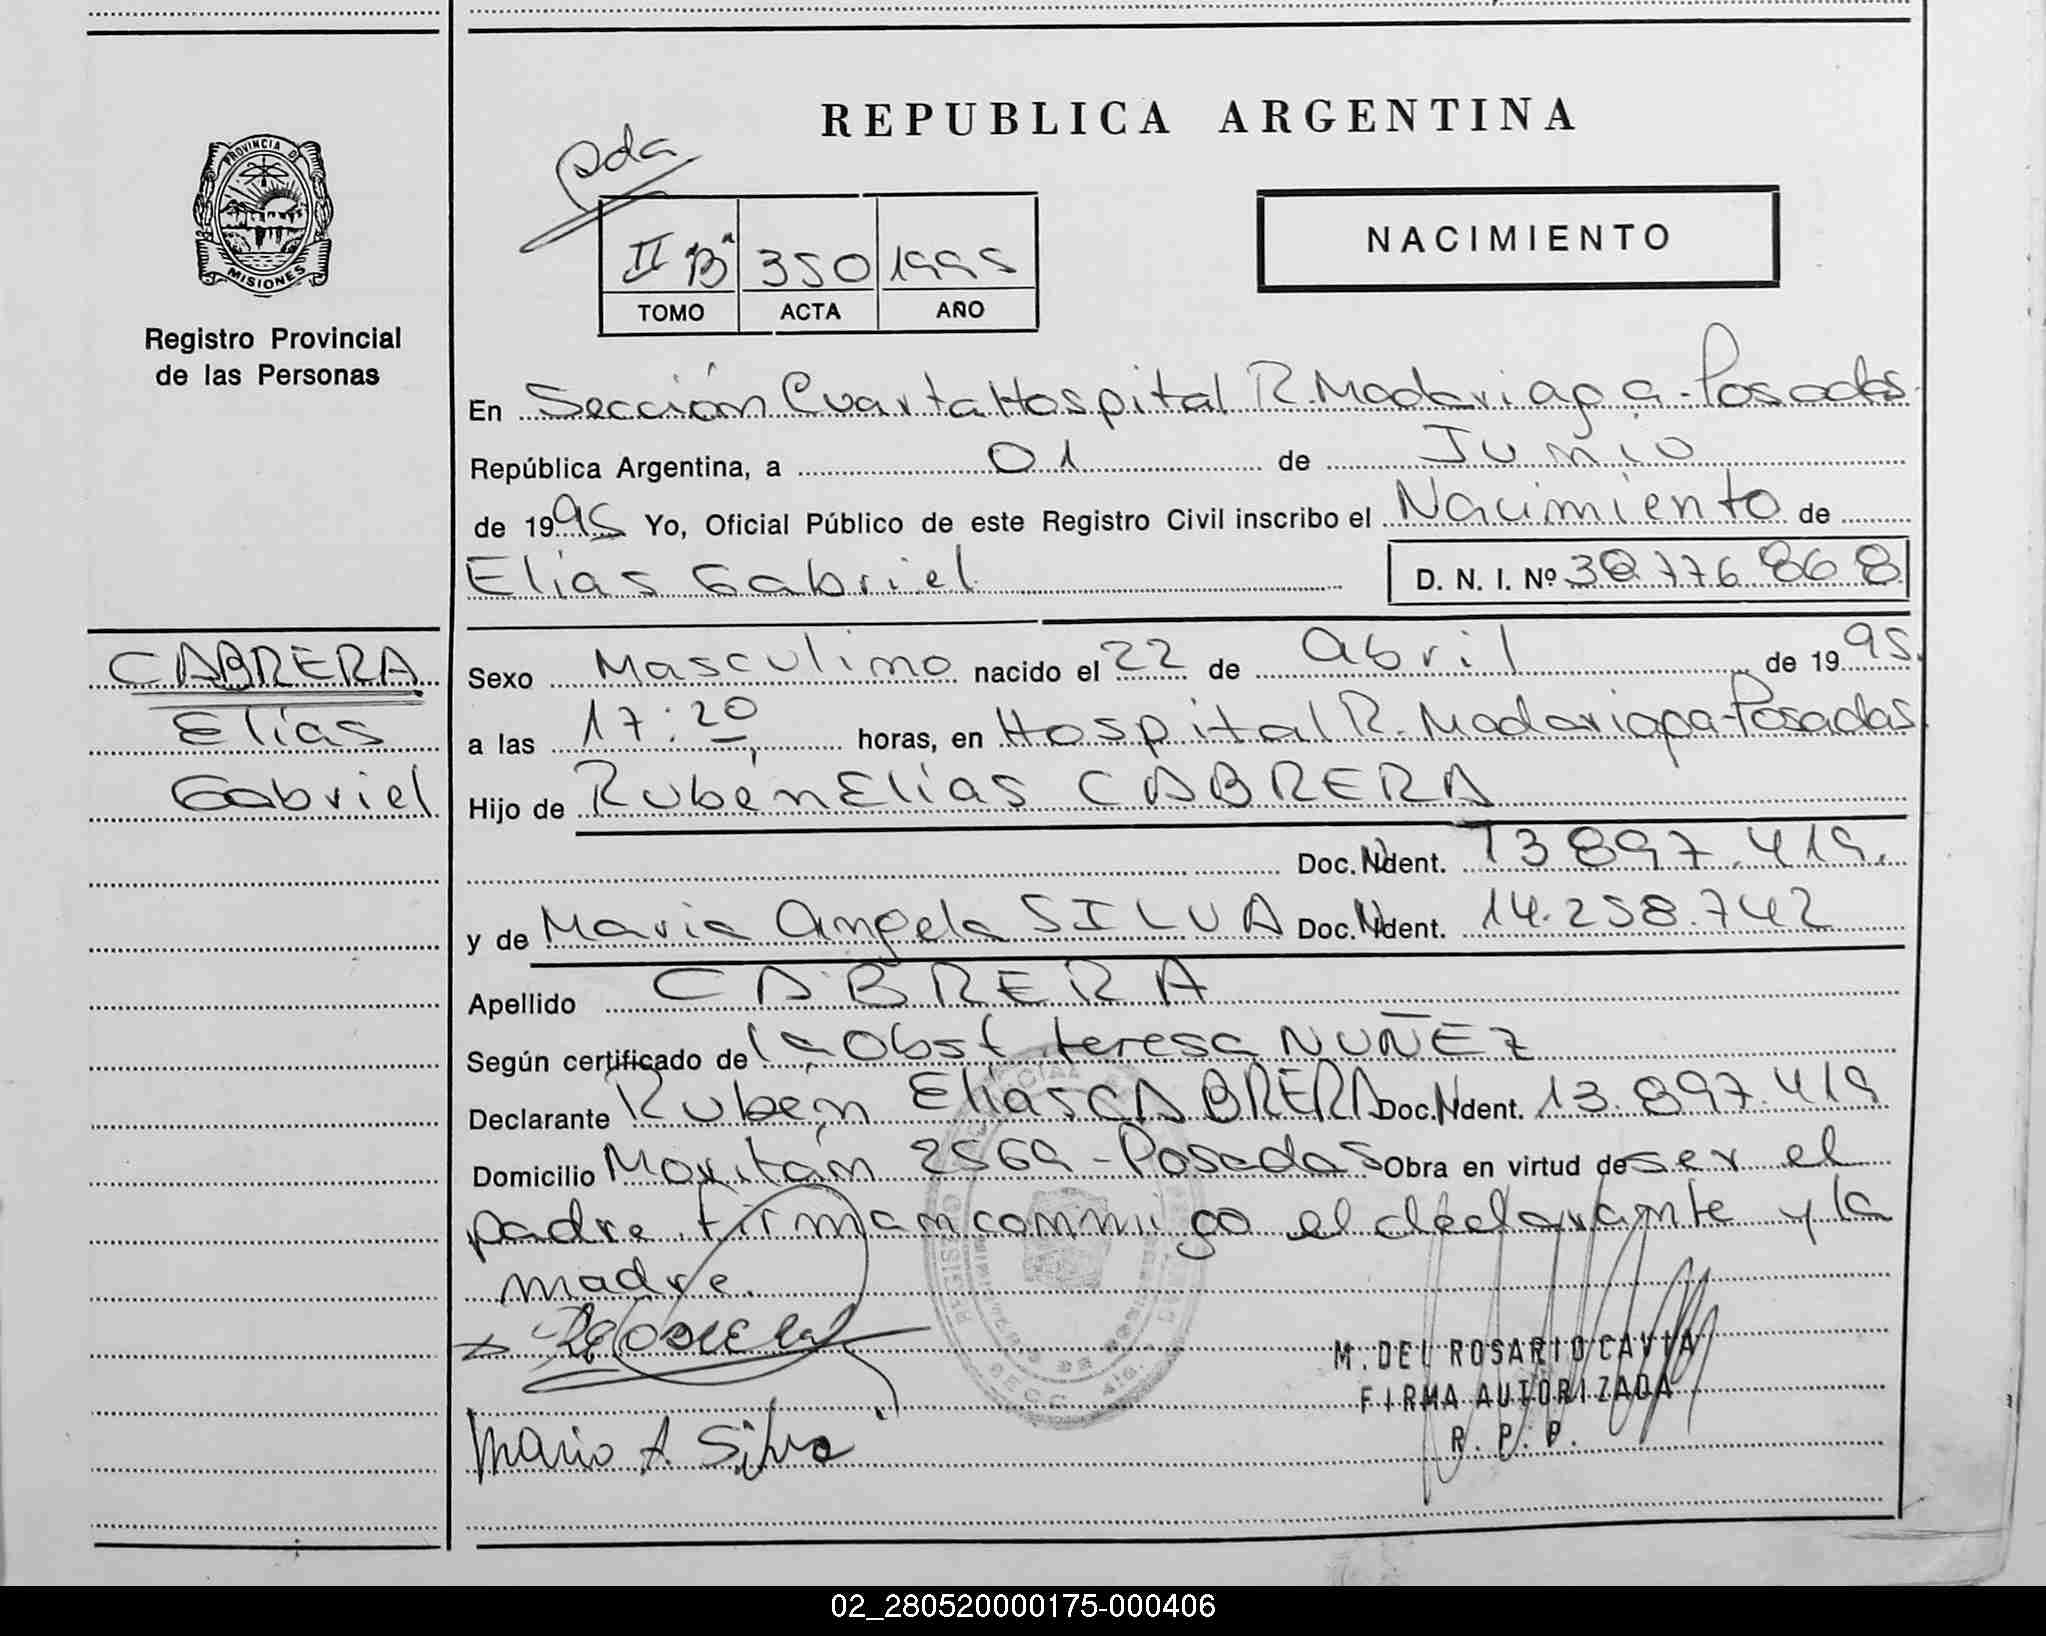 REPUBLICA ARGENTINA
PROVINCIA D
MISIONES
Registro Provincial
de las Personas
pda
II Bª 350 1995
TOMO ACTA AÑO
NACIMIENTO
En Sección Cuarta Hospital R. Madariaga - Posadas.
República Argentina, a 01 de Junio
de 1995 Yo, Oficial Público de este Registro Civil inscribo el Nacimiento de
Elías Gabriel D. N. I. Nº 38 776 868
CABRERA
Elías
Gabriel
Sexo Masculino nacido el 22 de abril de 1995.
a las 17:20 horas, en Hospital R. Madariaga-Posadas
Hijo de Rubén Elías CABRERA
Doc. Ident. 13 897.419.
y de Maria Angela SILVA Doc. Ident. 14.258.742
Apellido CABRERA
Según certificado de la Obst teresa NUÑEZ
Declarante Rubén Elías CABRERA Doc. Ident. 13.897.419
Domicilio 2569 - Posadas Obra en virtud de ser el
padre. firman conmigo el declarante y la
madre.
M. DEL ROSARIO CAVIA
FIRMA AUTORIZADA
R. P. P.
A. Silva
02_280520000175-000406